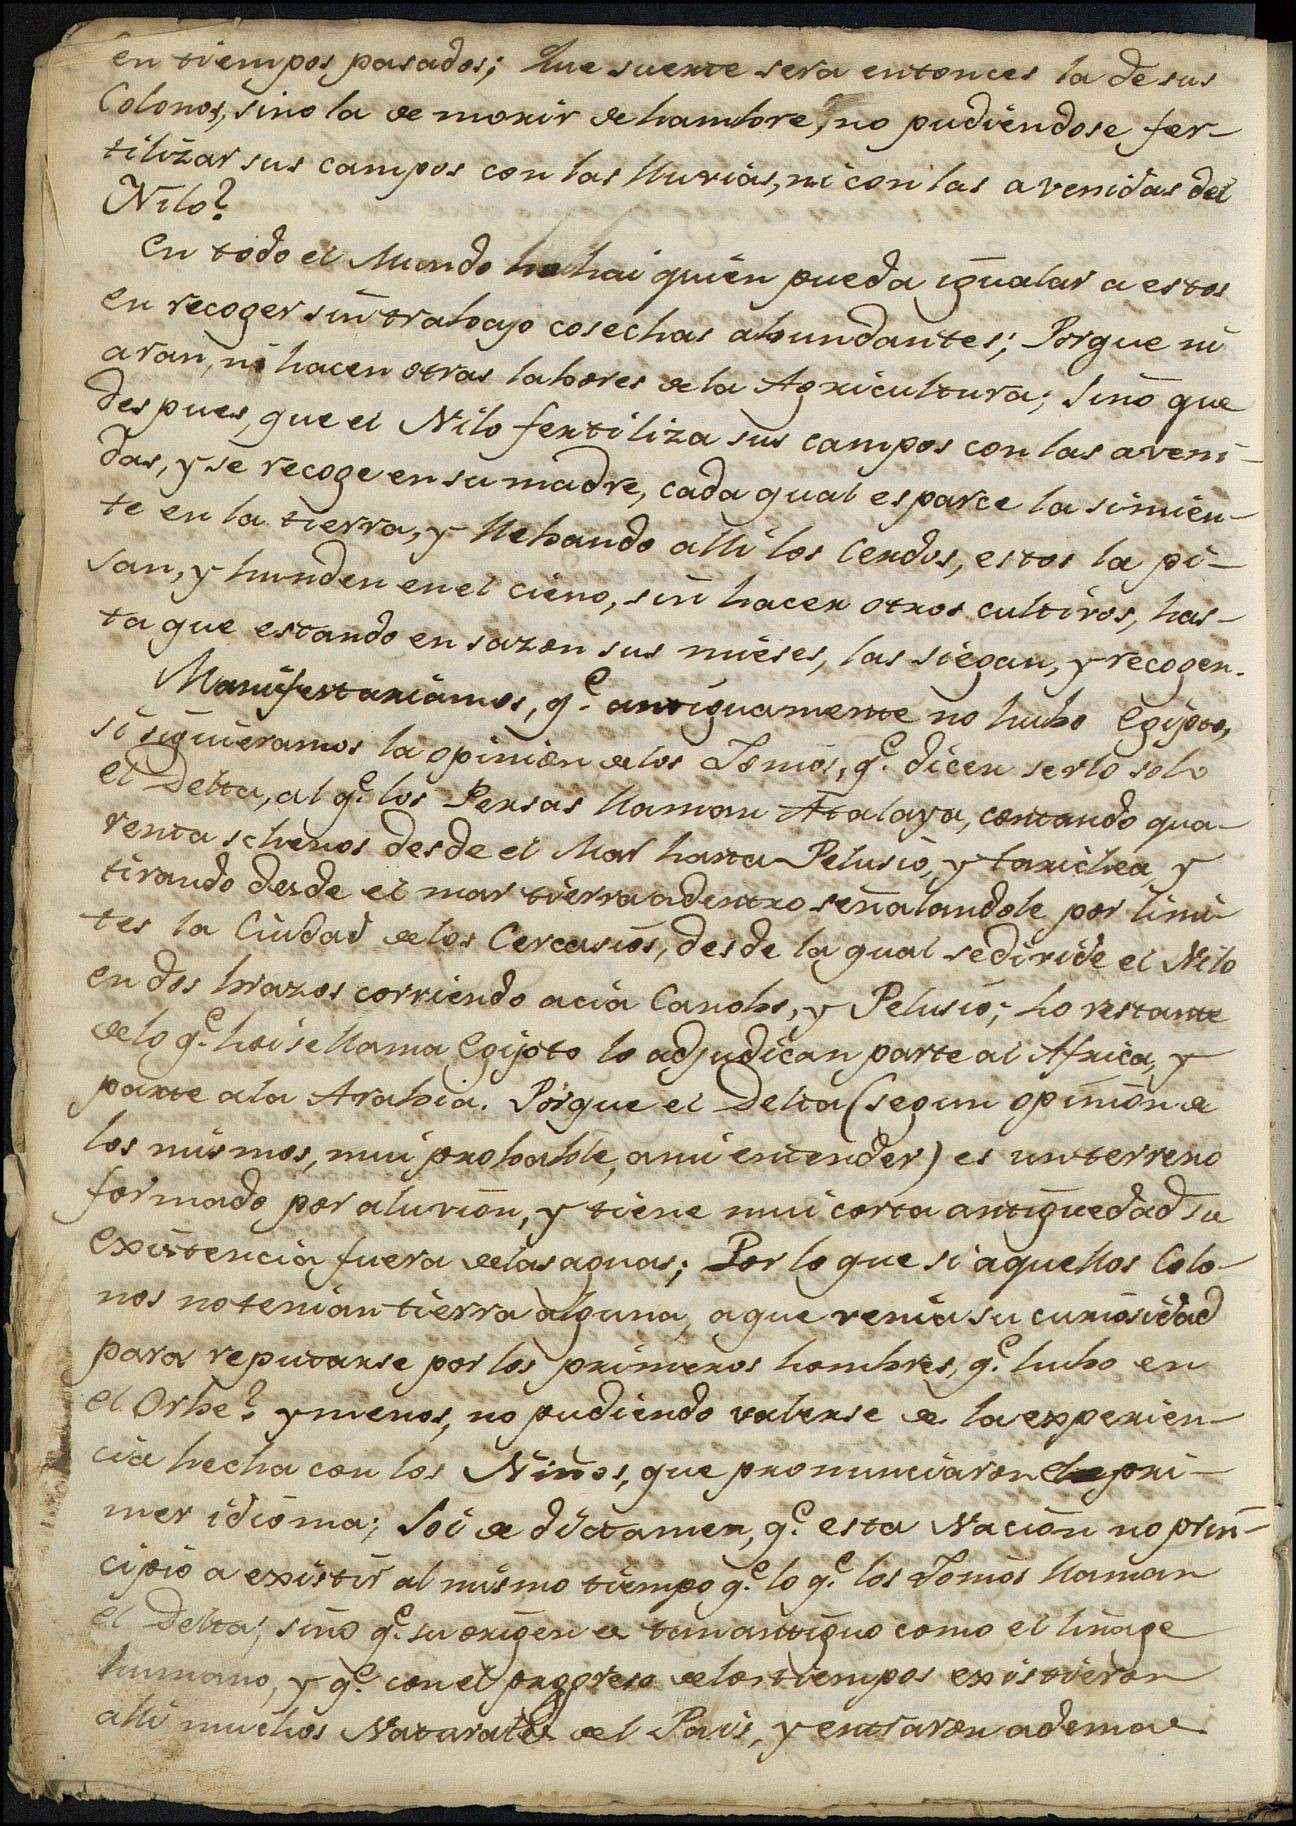 en tiempos pasados; Que suerte sera entonces la de sus
Colonos, sino la de morir de hambre, no pudiendose fer-
tilizar sus campos con las lluvias, ni con las avenidas del
Nilo?
En todo el Mundo no hai quien pueda igualar a estos
en recoger sin trabajo cosechas abundantes; Porque ni
aran, ni hacen otras labores de la Agricultura; sino que
despues, que el Nilo fertiliza sus campos con las aveni-
das, y se recoge en su madre, cada qual esparce la simien-
te en la tierra, y llebando alli los Cerdos, estos la pi-
san, y hunden en el cieno, sin hacer otros cultivos, has-
ta que estando en sazon sus mieses, las siegan, y recogen.
Manifestariamos, q.e antiguamente no hubo Egipto,
si siguieramos la opinion de los Jonios, q.e dicen serlo solo
el Delta, al q.e los Persas llaman Atalaya, contando qua-
renta schenos desde el Mar hasta Pelusio, y tarichea, y
tirando desde el mar tierra adentro señalandole por limi-
tes la Ciudad de los Cercasios, desde la qual se divide el Nilo
en dos brazos corriendo acia Canobo, y Pelusio; lo restante
de lo q.e hoi se llama Egipto lo adjudican parte al Africa, y
parte a la Arabia. Porque el Delta (segun opinion de
los mismos, mui probable, a mi entender) es un terreno
formado por aluvion, y tiene mui corta antiguedad su
existencia fuera de las aguas; Por lo que si aquellos Colo-
nos no tenian tierra alguna, a que venia su curiosidad
para reputarse por los primeros hombres, q.e hubo en
el Orbe? y menos, no pudiendo valerse de la experien-
cia hecha con los Niños, que pronunciaron el pri-
mer idioma; Soi de dictamen, q.e esta Nacion no prin-
cipio a existir al mismo tiempo q.e lo q.e los Jonios llaman
el Delta; sino q.e su origen es tan antiguo como el linage
humano, y q.e con el progreso de los tiempos existieron
alli muchos Naturales del Pais, y entraron ademas